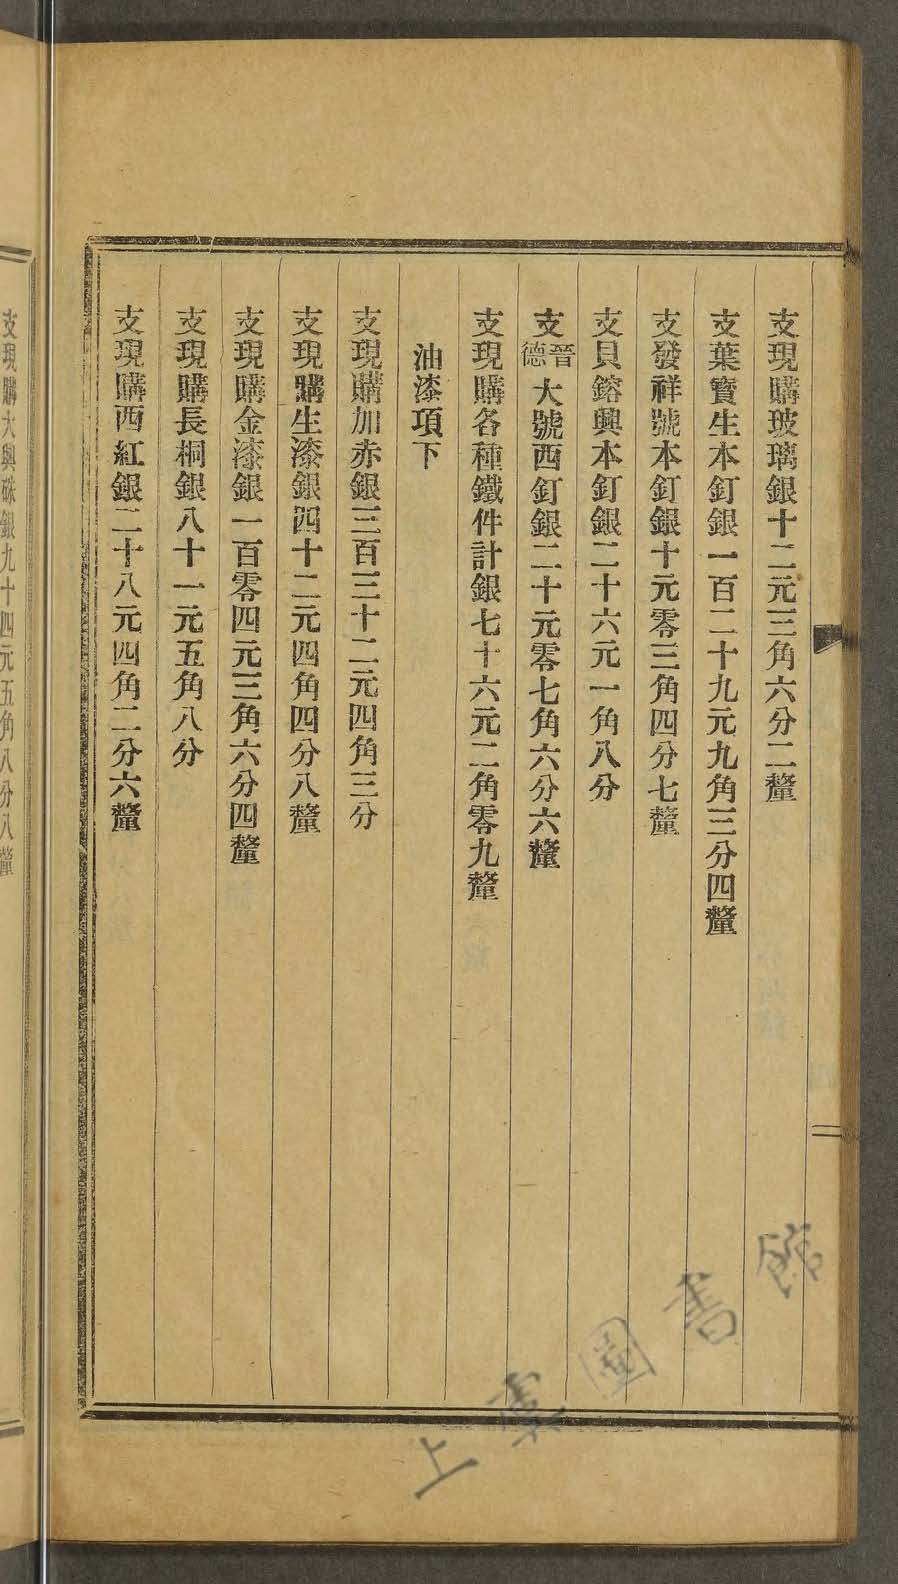 支現購玻璃銀十二元三角六分二釐
支葉寶生本釘銀一百二十九元九角三分四釐
支發祥號本釘銀十元零三角四分七釐
支貝鎔興本釘銀二十六元一角八分
支晉德大號西釘銀二十元零七角六分六釐
支現購各種鐵件計銀七十六元二角零九釐
油漆項下
支現購加赤銀三百三十二元四角三分
支現購生漆銀四十二元四角四分八釐
支現購金漆銀一百零四元三角六分四釐
支現購長桐銀八十一元五角八分
支現購西紅銀二十八元四角二分六釐
支現購大興硃銀九十四元五角八分八釐
上虞圖書館